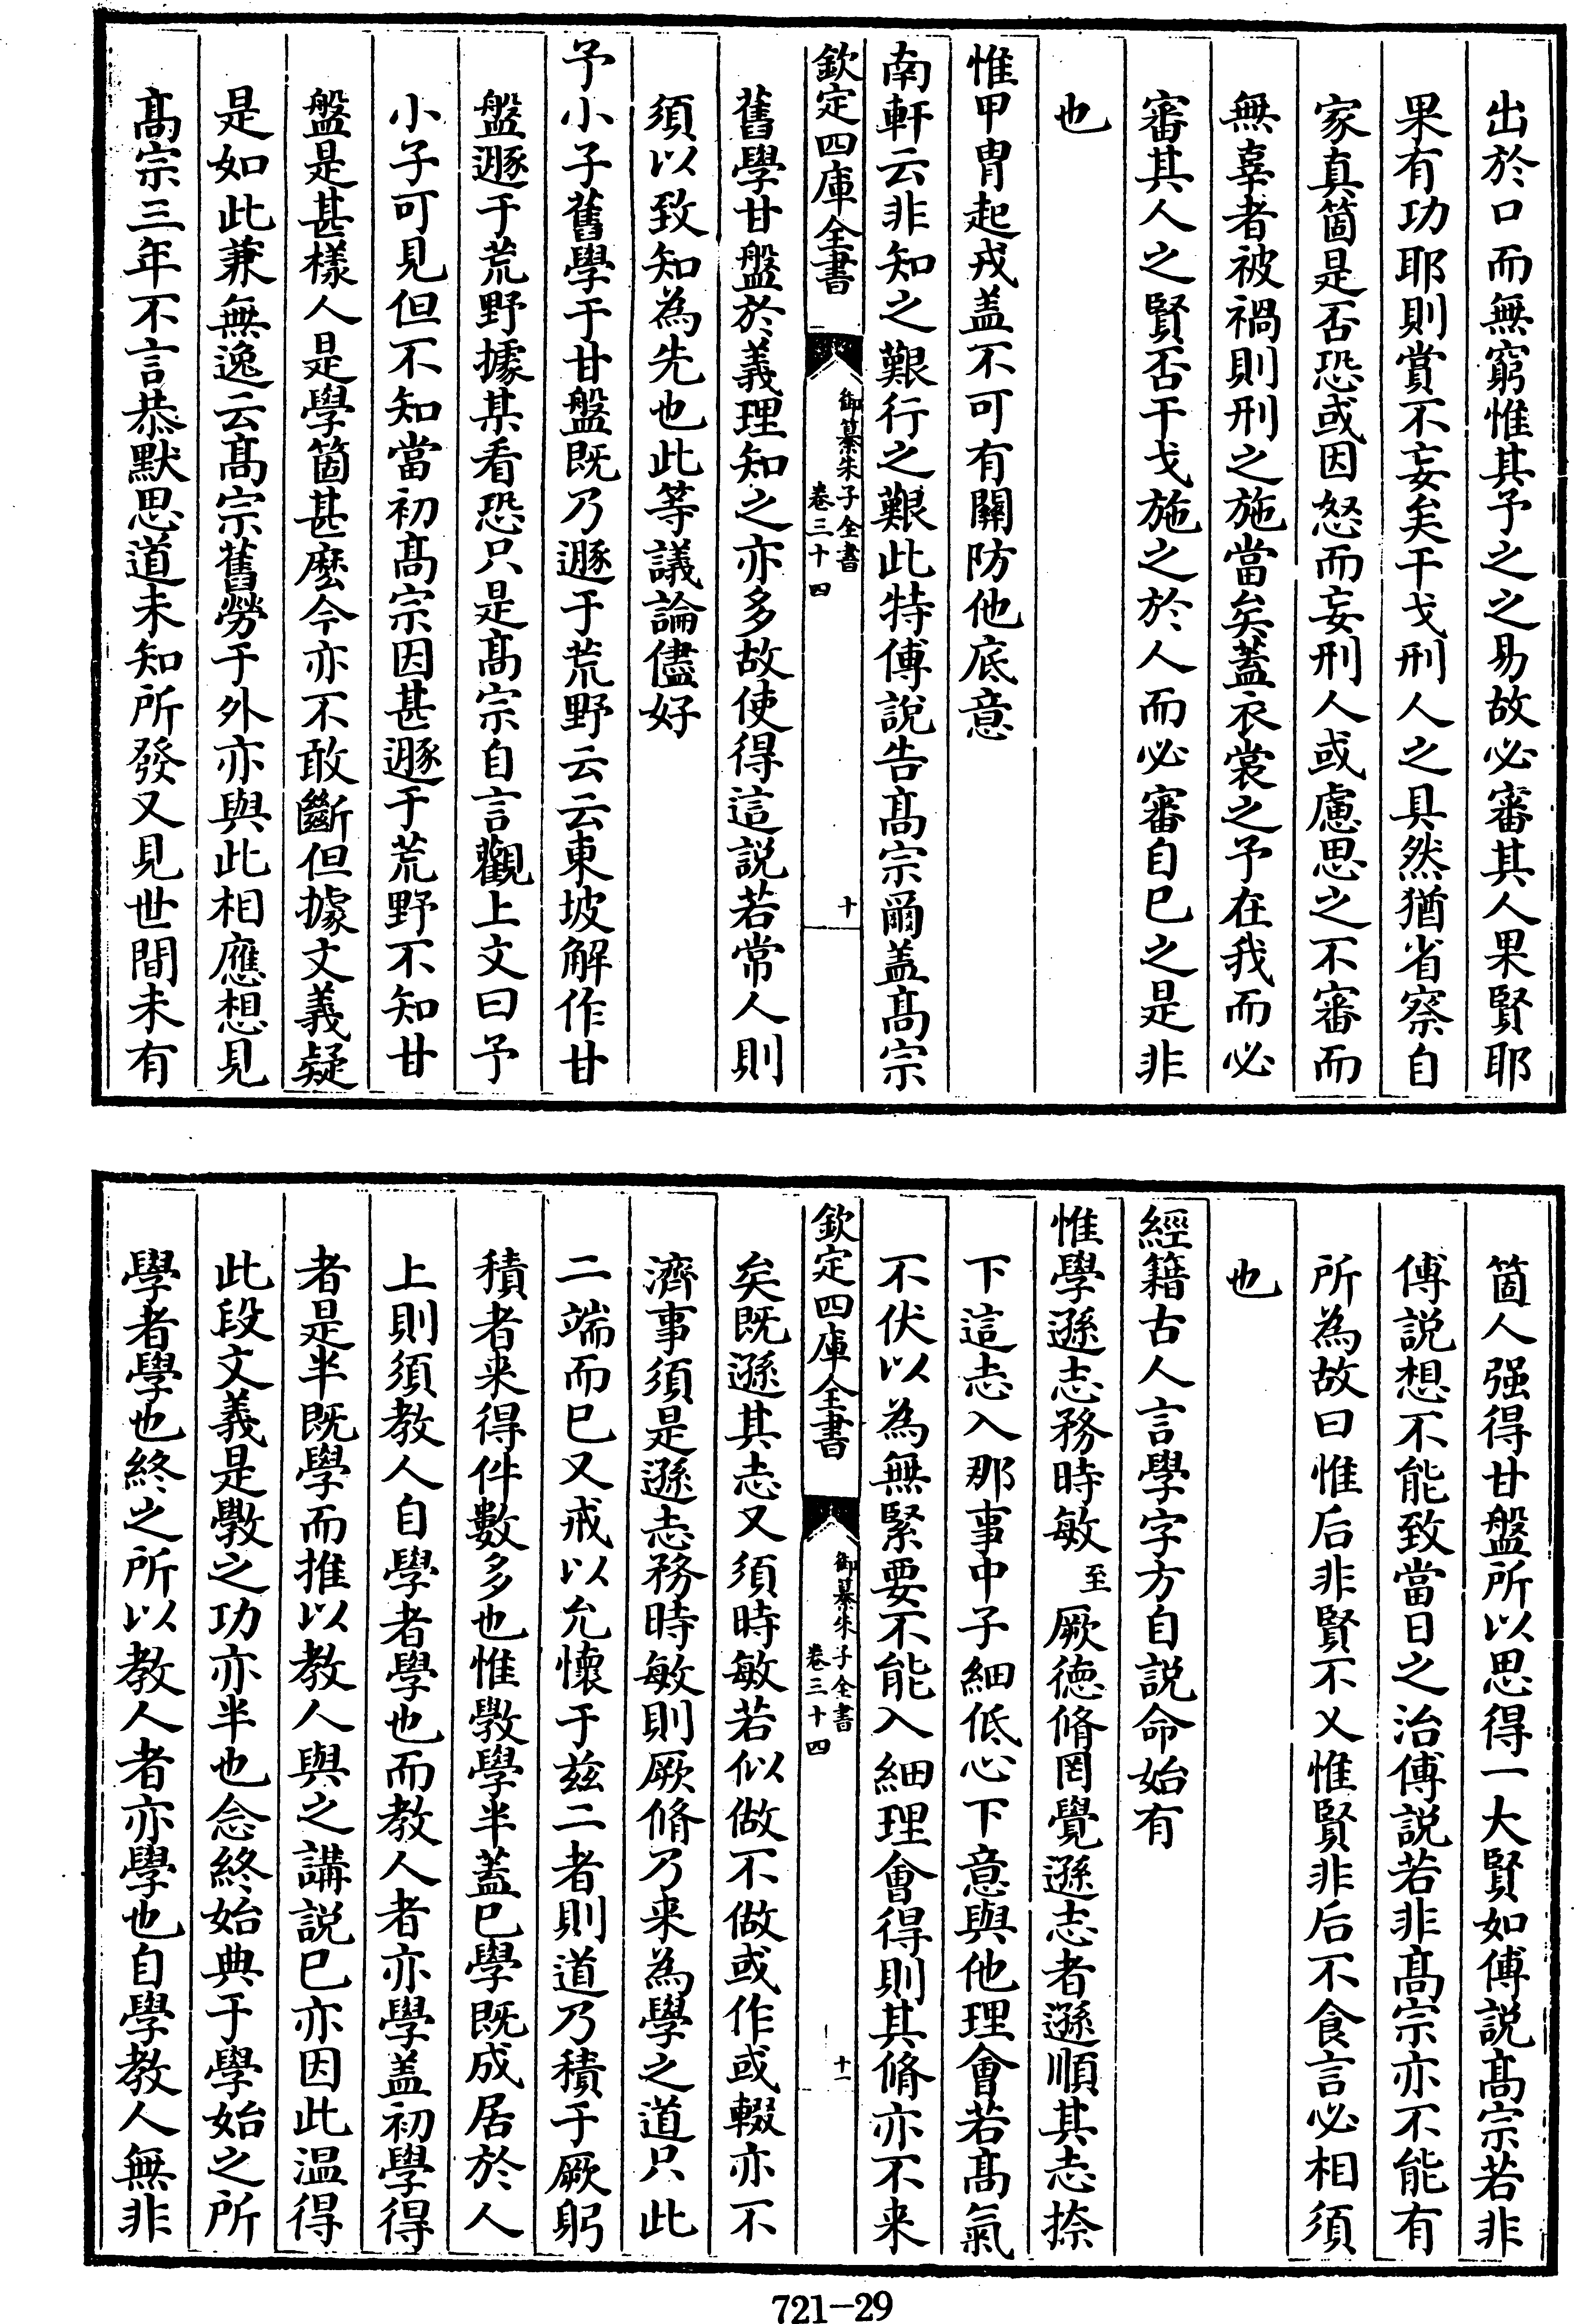 出於口而無窮惟其予之之易故必審其人果賢耶
果有功耶則賞不妄矣干戈刑人之具然猶省察自
家真箇是否恐或因怒而妄刑人或慮思之不審而
無辜者被禍則刑之施當矣蓋衣裳之予在我而必
審其人之賢否干戈施之於人而必審自已之是非
也
惟甲胄起戎盖不可有關防他底意
南軒云非知之艱行之艱此特傅說告髙宗爾盖髙宗
欽定四庫全書
御纂朱子全書
卷三十四
十
舊學甘盤於義理知之亦多故使得這説若常人則
須以致知為先也此等議論儘好
予小子舊學于甘盤既乃遯于荒野云云東坡解作甘
盤遯于荒野據某看恐只是髙宗自言觀上文曰予
小子可見但不知當初髙宗因甚遯于荒野不知甘
盤是甚樣人是學箇甚麽今亦不敢斷但據文義疑
是如此兼無逸云髙宗舊勞于外亦與此相應想見
髙宗三年不言恭默思道未知所發又見世間未有
箇人强得甘盤所以思得一大賢如傅説髙宗若非
傅説想不能致當日之治傅説若非髙宗亦不能有
所為故曰惟后非賢不乂惟賢非后不食言必相須
也
經籍古人言學字方自説命始有
惟學遜志務時敏至厥徳脩罔覺遜志者遜順其志捺
下這志入那事中子細低心下意與他理會若髙氣
不伏以為無緊要不能入細理會得則其脩亦不来
欽定四庫全書
御纂朱子全書
卷三十四
十一
矣既遜其志又須時敏若似做不做或作或輟亦不
濟事須是遜志務時敏則厥脩乃来為學之道只此
二端而已又戒以允懷于兹二者則道乃積于厥躬
積者来得件數多也惟斆學半蓋已學既成居於人
上則須教人自學者學也而教人者亦學盖初學得
者是半既學而推以教人與之講説已亦因此温得
此段文義是斆之功亦半也念終始典于學始之所
學者學也終之所以教人者亦學也自學教人無非
721-29